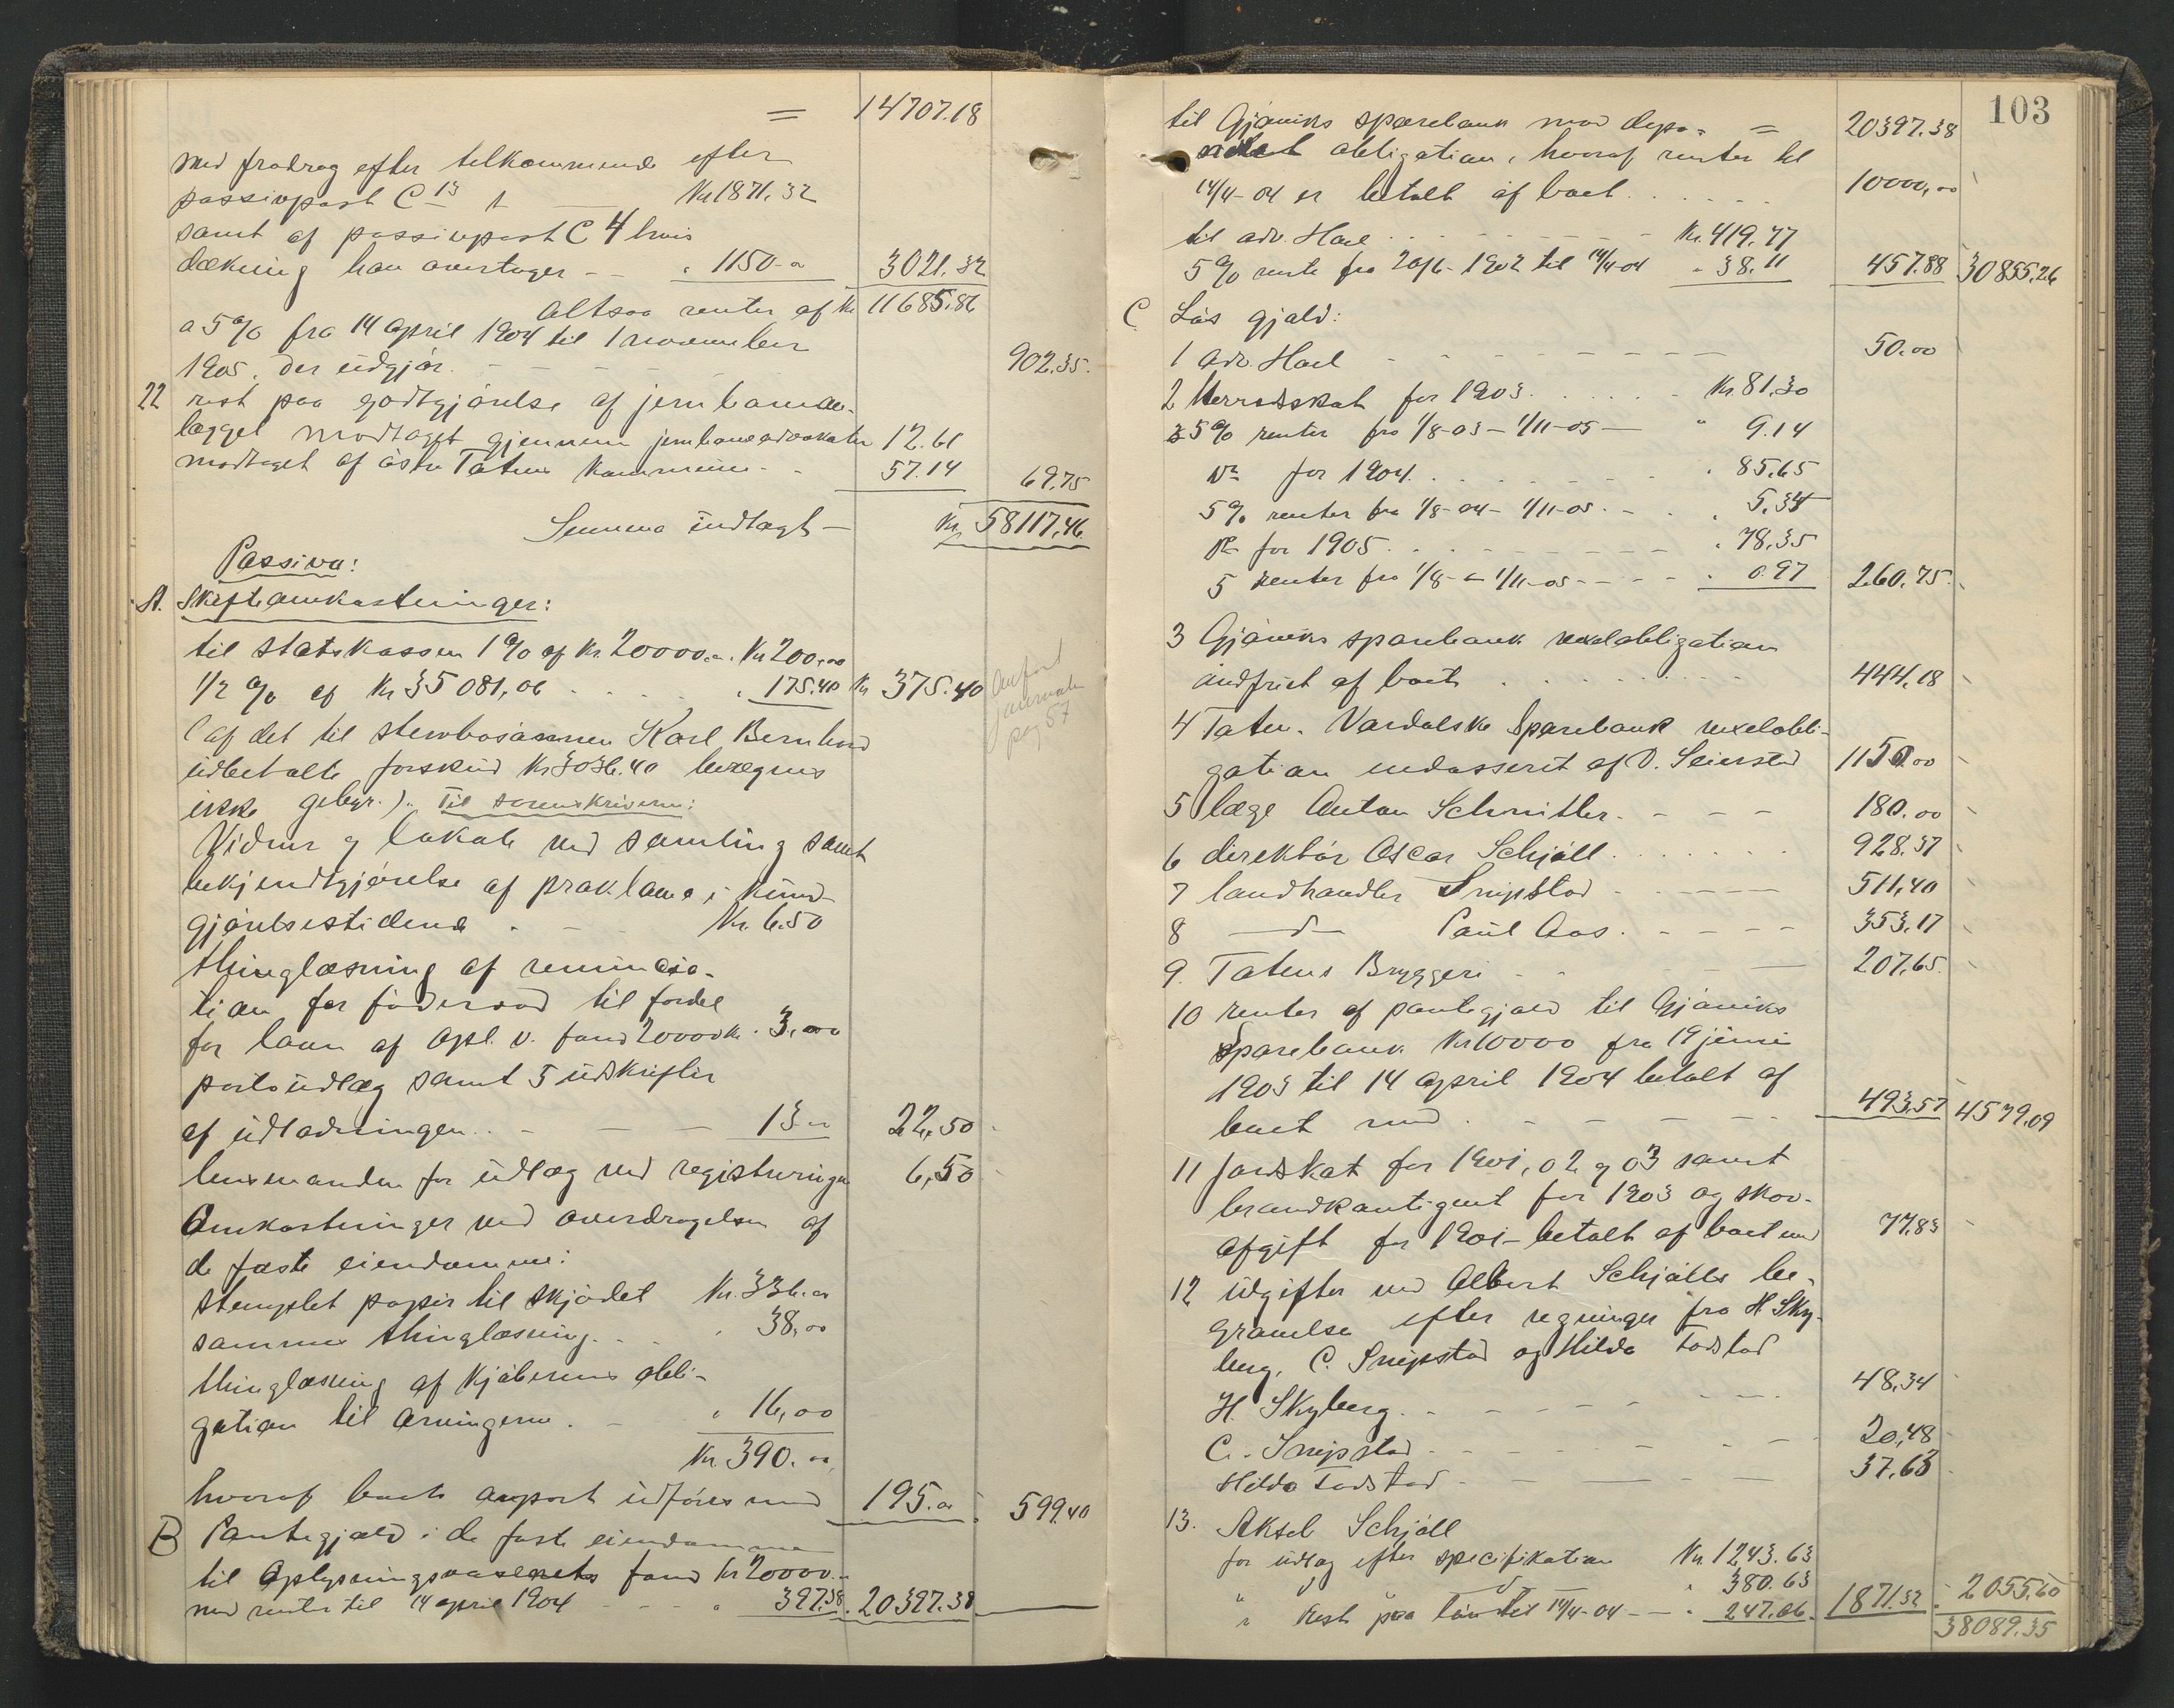 = 14707.18
med fradrag efter tilkommende efter
passivpost C 13 1 — Kr 1871.32
samt af passivpost C 4 hvis
dækning han overtager - - " 1150 - 3021.32
altsaa renter af Kr 11685.86
a 5% fra 14 april 1904 til 1 november
1905. der udgjør - - - - - 902.35.
22 rest paa godtgjørelse af jernbanean-
lægget modtaget gjennem jernbaneadvokaten 12.61
modtaget af østre Toten kommune - - 57.14 69.75
Summa indtægt — Kr 58117.46
Passiva:
A. Skifteomkostninger:
til statskassen 1% af Kr. 20000.-. Kr 200,00
1/2 % af Kr 35081,06 . . . . . " 175.40 Kr 375.40
Anført journalen pag 57
(af det til stervbosønnen Karl Bernhard
udbetalte forskud Kr 3036.40 beregnes
ikke gebyr.). Til sorenskriveren:
Vidner og lokale ved samling samt
bekjendtgjørelse af proklama i kund-
gjørelsestidende . - - Kr. 6.50
thinglæsning af renuncia-
tion for føderaad til fordel
for laan af opl. v. fond 20000 Kr. " 3,00
porto udlæg samt 5 udskrifter
af udlodningen . . - — — 13 - 22,50
lensmanden for udlæg ved registreringen 6,50
Omkostninger ved overdragelsen af
de faste eiendomme:
stemplet papir til skjødet Kr. 336.-
sammes thinglæsning. . . " 38,00
thinglæsning af kjøberens obli-
gation til arvingerne . - " 16,00
Kr 390.00
hvoraf boets anpart udføres med 195.- 599.40
B Pantegjæld i de faste eiendomme
til Oplysningsvæsenets fond Kr 20000.-
med renter til 14 april 1904 - - - " 397.38 . 20397.38
103
til Gjøviks sparebank mod depo- = 20397.38
neret obligation, hvoraf renter til
14/4-04 er betalt af boet . . . . . . 10000,00
til adv. Hoel . - - - - - - - Kr. 419.77
5% rente fra 20/6-1902 til 14/4-04 " 38.11 457.88 30855.26
C Løs gjæld:
1 adv. Hoel - - - - - - - — 50.00
2 Herredsskat for 1903 . . . . . - Kr. 81.30
5% renter fra 1/8-03 — 1/11-05 — " 9.14
Do for 1904. . . . . . . . . " 85.65
5% renter fra 1/8-04 - 1/11-05 . - . " 5.34
Do for 1905 . . - - - - - - " 78.35
5 renter fra 1/8 - 1/11-05 - - - - " 0.97 260.75.
3 Gjøviks sparebank vexelobligation
indfriet af boet . . . . . . . . . 444.18
4 Toten. Vardalske Sparebank vexelobli-
gation endosseret af O. Seiersted 1150.00
5 læge Anton Schmitler. - - - - 180.00
6 direktør Oscar Schjøll . . . . . . . 928.37
7 landhandler Snipstad - - - - — 511,40
8 — d — Paul Aas. - - - - - 353.17
9. Totens Bryggeri - - - - — 207.65.
10 renter af pantegjæld til Gjøviks
Sparebank Kr 10000 fra 19 juni
1903 til 14 april 1904 betalt af
boet med . - - - - - - 493.57 4579.09
11 Jordskat for 1901, 02 og 03 samt
brandkontigent for 1903 og skov-
afgift for 1901 - betalt af boet med 77.83
12 udgifter ved Albert Schjølls be-
gravelse efter regninger fra H. Sky-
berg, C. Snipstad og Hilda Fodstad
H. Skyberg. - - - - - - - - 48,34
C. Snipstad - - - - - - - — 20,48
Hilda Fodstad - - — — - — 37.63
13. Aksel Schjøll
for udlæg efter specifikation Kr. 1243.63
" d " — d — " 380.63
" Rest paa løn til 14/4-04 - — " 247.06. 1871.32 2055.60
38089.35